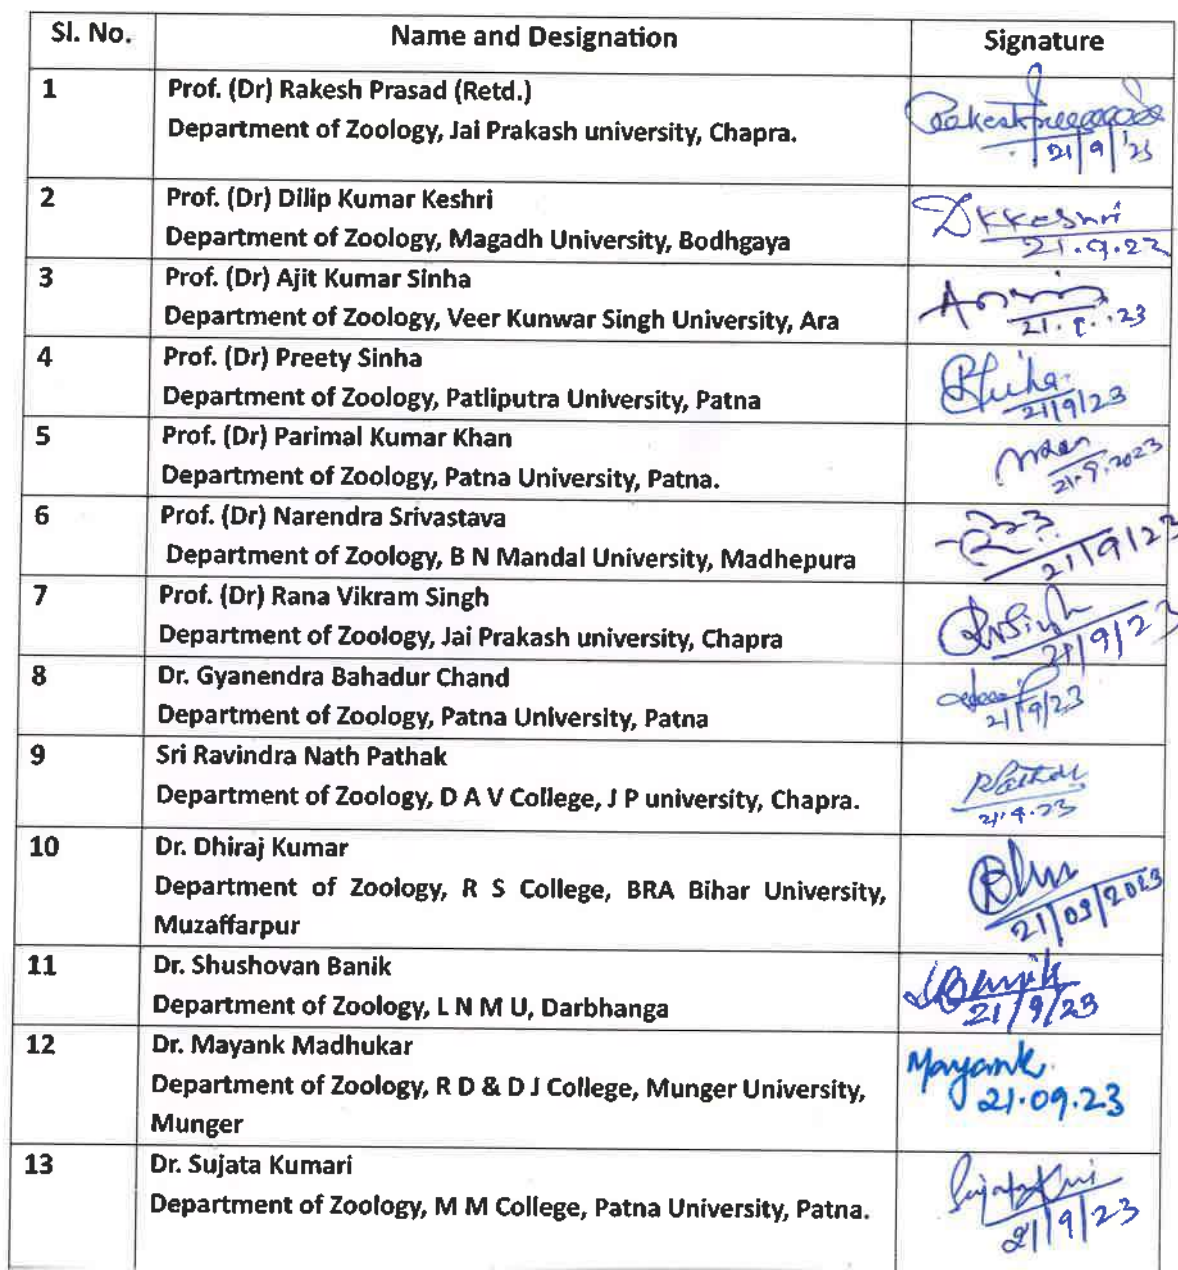 Sl. No. Name and Designation Signature
1 Prof. (Dr) Rakesh Prasad (Retd.)
Department of Zoology, Jai Prakash university, Chapra.
21/9/23
2 Prof. (Dr) Dilip Kumar Keshri
DKKeshri
Department of Zoology, Magadh University, Bodhgaya
3 Prof. (Dr) Ajit Kumar Sinha
Department of Zoology, Veer Kunwar Singh University, Ara
4 Prof. (Dr) Preety Sinha
Department of Zoology, Patliputra University, Patna
21/9/23
5 Prof. (Dr) Parimal Kumar Khan
Department of Zoology, Patna University, Patna.
21.9.2023
6 Prof. (Dr) Narendra Srivastava
Department of Zoology, B N Mandal University, Madhepura
21/9/23
7 Prof. (Dr) Rana Vikram Singh
RVSingh
Department of Zoology, Jai Prakash university, Chapra
21/9/23
8 Dr. Gyanendra Bahadur Chand
Department of Zoology, Patna University, Patna
21/9/23
9 Sri Ravindra Nath Pathak
Department of Zoology, D A V College, J P university, Chapra.
21.9.23
10 Dr. Dhiraj Kumar
Department of Zoology, R S College, BRA Bihar University,
Muzaffarpur
21/09/2023
11 Dr. Shushovan Banik
SBanik
Department of Zoology, L N M U, Darbhanga
21/9/23
12 Dr. Mayank Madhukar
Mayank
Department of Zoology, R D & D J College, Munger University,
21.09.23
Munger
13 Dr. Sujata Kumari
Department of Zoology, M M College, Patna University, Patna.
21/9/23